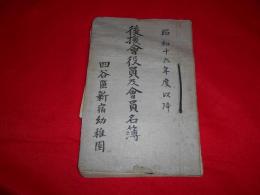 昭和十六年度以降
後援會役員及會員名簿
四谷區新宿幼稚園